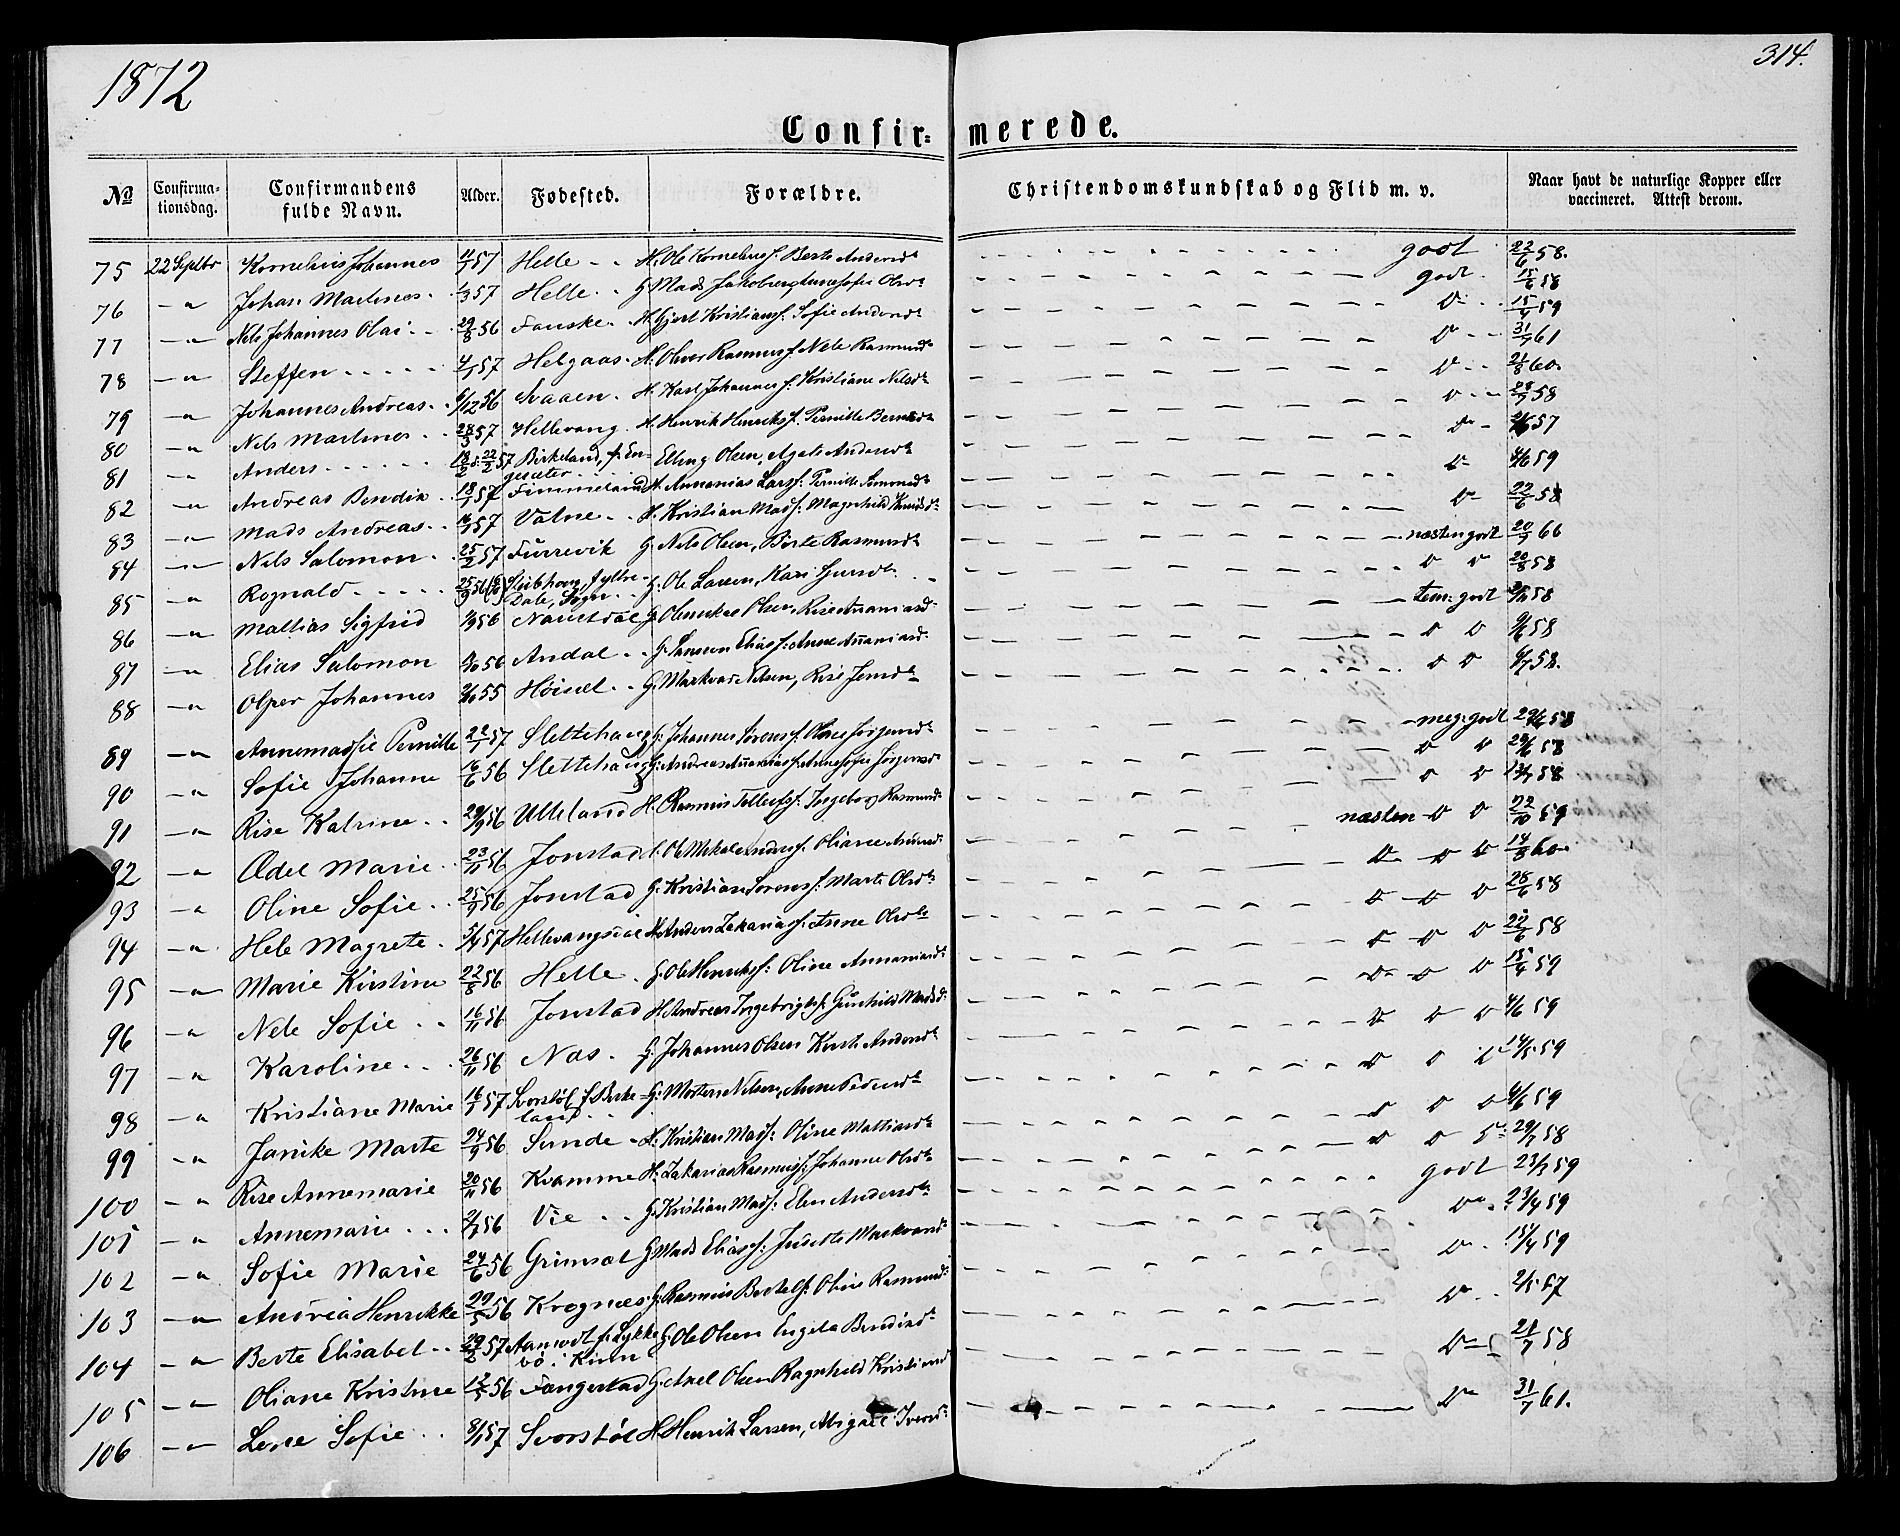 1872
314.
Confir- merede.
No Confirmationsdag. Confirmandens fulde Navn. Alder. Fødested. Forældre. Christendomskundskab og Flid m. v. Naar havt de naturlige Kopper eller vaccineret. Attest derom.
75 22 Septbr Kornelius Johannes 57 Helle H. Ole Korneliuss. Berte Andersd. godt 22/6 58.
76 —"— Johan Martinus 1/3 57 Helle G. Mads Jakobsen, Annesofie Olsd. godt 15/6 58
77 —"— Nils Johannes Olai 29/8 56 Fauske H. Gjert Kristians. Sofie Andersd. Do 15/4 59
78 —"— Steffen 57 Helgaas H. Oliver Rasmuss. Nele Rasmusd. Do 31/7 61
79 —"— Johannes Andreas 6/12 56 Svaaen H. Karl Johanness. Kristiane Nilsd. Do 21/8 60
80 —"— Nils Martinus 28/3 57 Hellevang H. Henrik Henrikss. Pernille Berntsd. Do 28/7 58
81 —"— Anders 18/2 d. 22/2 57 Birkeland, f. Engesæter Elling Olsen, Agate Andersd. Do 57
82 —"— Andreas Bendix 18/1 57 Fimmeland H. Annanias Larss. Pernille Simonsd. Do 4/6 59
83 —"— Mads Andreas 57 Valne H. Kristian Madss. Magnhild Knudsd. Do 22/6 58
84 —"— Nils Salomon 25/2 57 Furrevik G. Nils Olsen, Berte Rasmusd. næsten godt 20/7 66
85 —"— Rognald 25/9 56 Slubhoug, Jylke Dale, Sogn G. Ole Larsen, Kari Gursd. Do Do 20/8 58
86 —"— Mattias Sigfrid 56 Naustdal G. Olemikal Olsen, Rise Ananiasd. tem: godt 58
87 —"— Elias Salomon 56 Andal G. Samson Eliass. Anne Ananiasd. Do Do 9/6 58
88 —"— Olper Johannes 55 Høisæt G. Markvar Nilsen, Rise Jensd. Do Do 6/7 58.
89 —"— Annemarsie Pernille 22/1 57 Slettehaug G. Johannes Sørens. Jørgensd. meg: godt 29/6 58
90 —"— Sofie Johanne 16/6 56 Slettehaug G. Andreas Ananiass. Annesofie Jørgensd. Do Do 28/6 58
91 —"— Rise Katrine 29/9 56 Ulleland H. Rasmus Tollefs. Ingeborg Rasmusd. Do Do 13/7 58
92 —"— Ædel Marie 23/11 56 Jonstad Ole Mikal Anderss. Oliane næsten Do Do 22/10 59
93 —"— Oline Sofie 25/9 56 Jonstad G. Kristian Sørens. Marte Olsd. Do Do Do 14/8 60
94 —"— Hele Magrete 5/4 57 Hellevangsdal H. Anders Zakariass. Anne Olsd. Do Do Do 28/6 58
95 —"— Marie Kirstine 22/8 56 Helle G. Ole Henrikss. Oline Annaniasd. Do Do Do 22/6 58
96 —"— Nele Sofie 16/11 56 Jonstad H. Andreas Ingebrigts. Gunhild Madsd. Do Do Do 15/4 59
97 —"— Karoline 26/11 56 Nas G. Johannes Olsen Kirsti Andersd. Do Do Do 4/6 59
98 —"— Kristiane Marie 16/1 57 Svorstøl f Birkeland G. Morten Nilsen, Anne Pedersd. Do Do Do 14/5 59
99 —"— Janike Marte 24/9 56 Sunde H. Kristian Madss. Oline Mattiasd. Do Do Do 4/6 59
100 —"— Rise Annemarie 20/11 56 Kvamme H. Zakarias Rasmuss. Johanne Olsd. Do Do 29/7 58
101 —"— Annemarie 56 Vie G. Kristian Madss. Elen Andersd. godt 23/7 59
102 —"— Sofie Marie 24/6 56 Grimsæt G. Mads Eliass. Juditte Markvardd. Do 23/4 59
103 —"— Andrea Henrikke 29/5 56 Krognæs G. Rasmus Bertels. Oline Rasmusd. Do 15/4 59
104 —"— Berte Elisabet 29/2 57 Aamodt f. Lykkebø i Kinn G. Ole Olsen Engela Bendixd. Do 2/5 67
105 —"— Oliane Kristine 12/5 56 Fangestad G. Axel Olsen Ragnhild Kristiansd. Do 21/7 58
106 —"— Lene Sofie 8/1 57 Svorstøl H. Henrik Larsen, Abigael Iversd. Do 31/7 61.